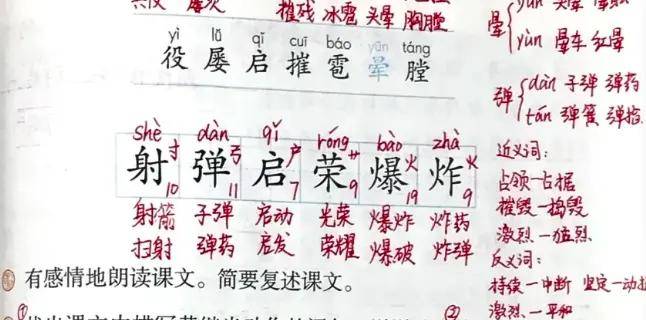 摧残 冰雹 头晕 胸膛
yì lǚ qǐ cuī báo yūn táng
役 屡 启 摧 雹 晕 膛
晕 yūn 头晕
yùn 晕车 红晕
弹 dàn 子弹 弹药
tán 弹簧 弹指
shè dàn qǐ róng bào zhà
射 弹 启 荣 爆 炸
寸 弓 户 艹 火 火
10 11 7 9 19 9
射箭 子弹 启动 光荣 爆炸 炸药
扫射 弹药 启发 荣耀 爆破 炸弹
近义词:
占领—占据
摧毁—捣毁
激烈—猛烈
反义词:
持续—中断 坚定—动摇
激烈—平和
有感情地朗读课文。简要复述课文。
① ②